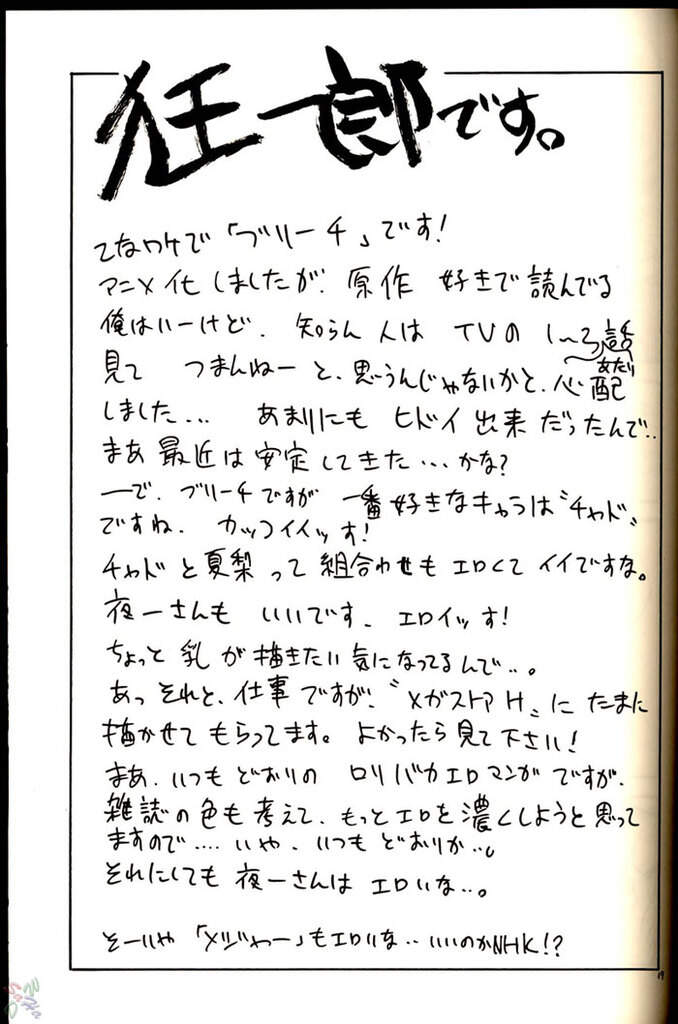 狂一郎です。
てなワケで「ブリーチ」です!
アニメ化しましたが、原作 好きで読んでる
俺はいーけど、知らん人は TVの 1〜3話
あたり
見て つまんねーと、思うんじゃないかと、心配
しました… あまりにも ヒドイ出来だったんで‥
まあ最近は安定してきた…かな?
一で、ブリーチですが 一番好きなキャラは〝チャド〟
ですね、カッコイイッす!
チャドと夏梨って組合わせもエロくてイイですな。
夜一さんも いいです、エロイッす!
ちょっと 乳が描きたい気になってるんで‥。
あっ それと、仕事ですが、〝メガストアH〟に たまに
描かせて もらってます。よかったら見て下さい!
まあ、いつもどおりの ロリバカエロマンガですが、
雑誌の色も考えて、もっとエロを濃くしようと思って
ますので‥‥ いや、いつも どおりか‥。
それにしても 夜一さんは エロいな‥。
そーいや「メジャー」もエロいな‥いいのかNHK!?
19